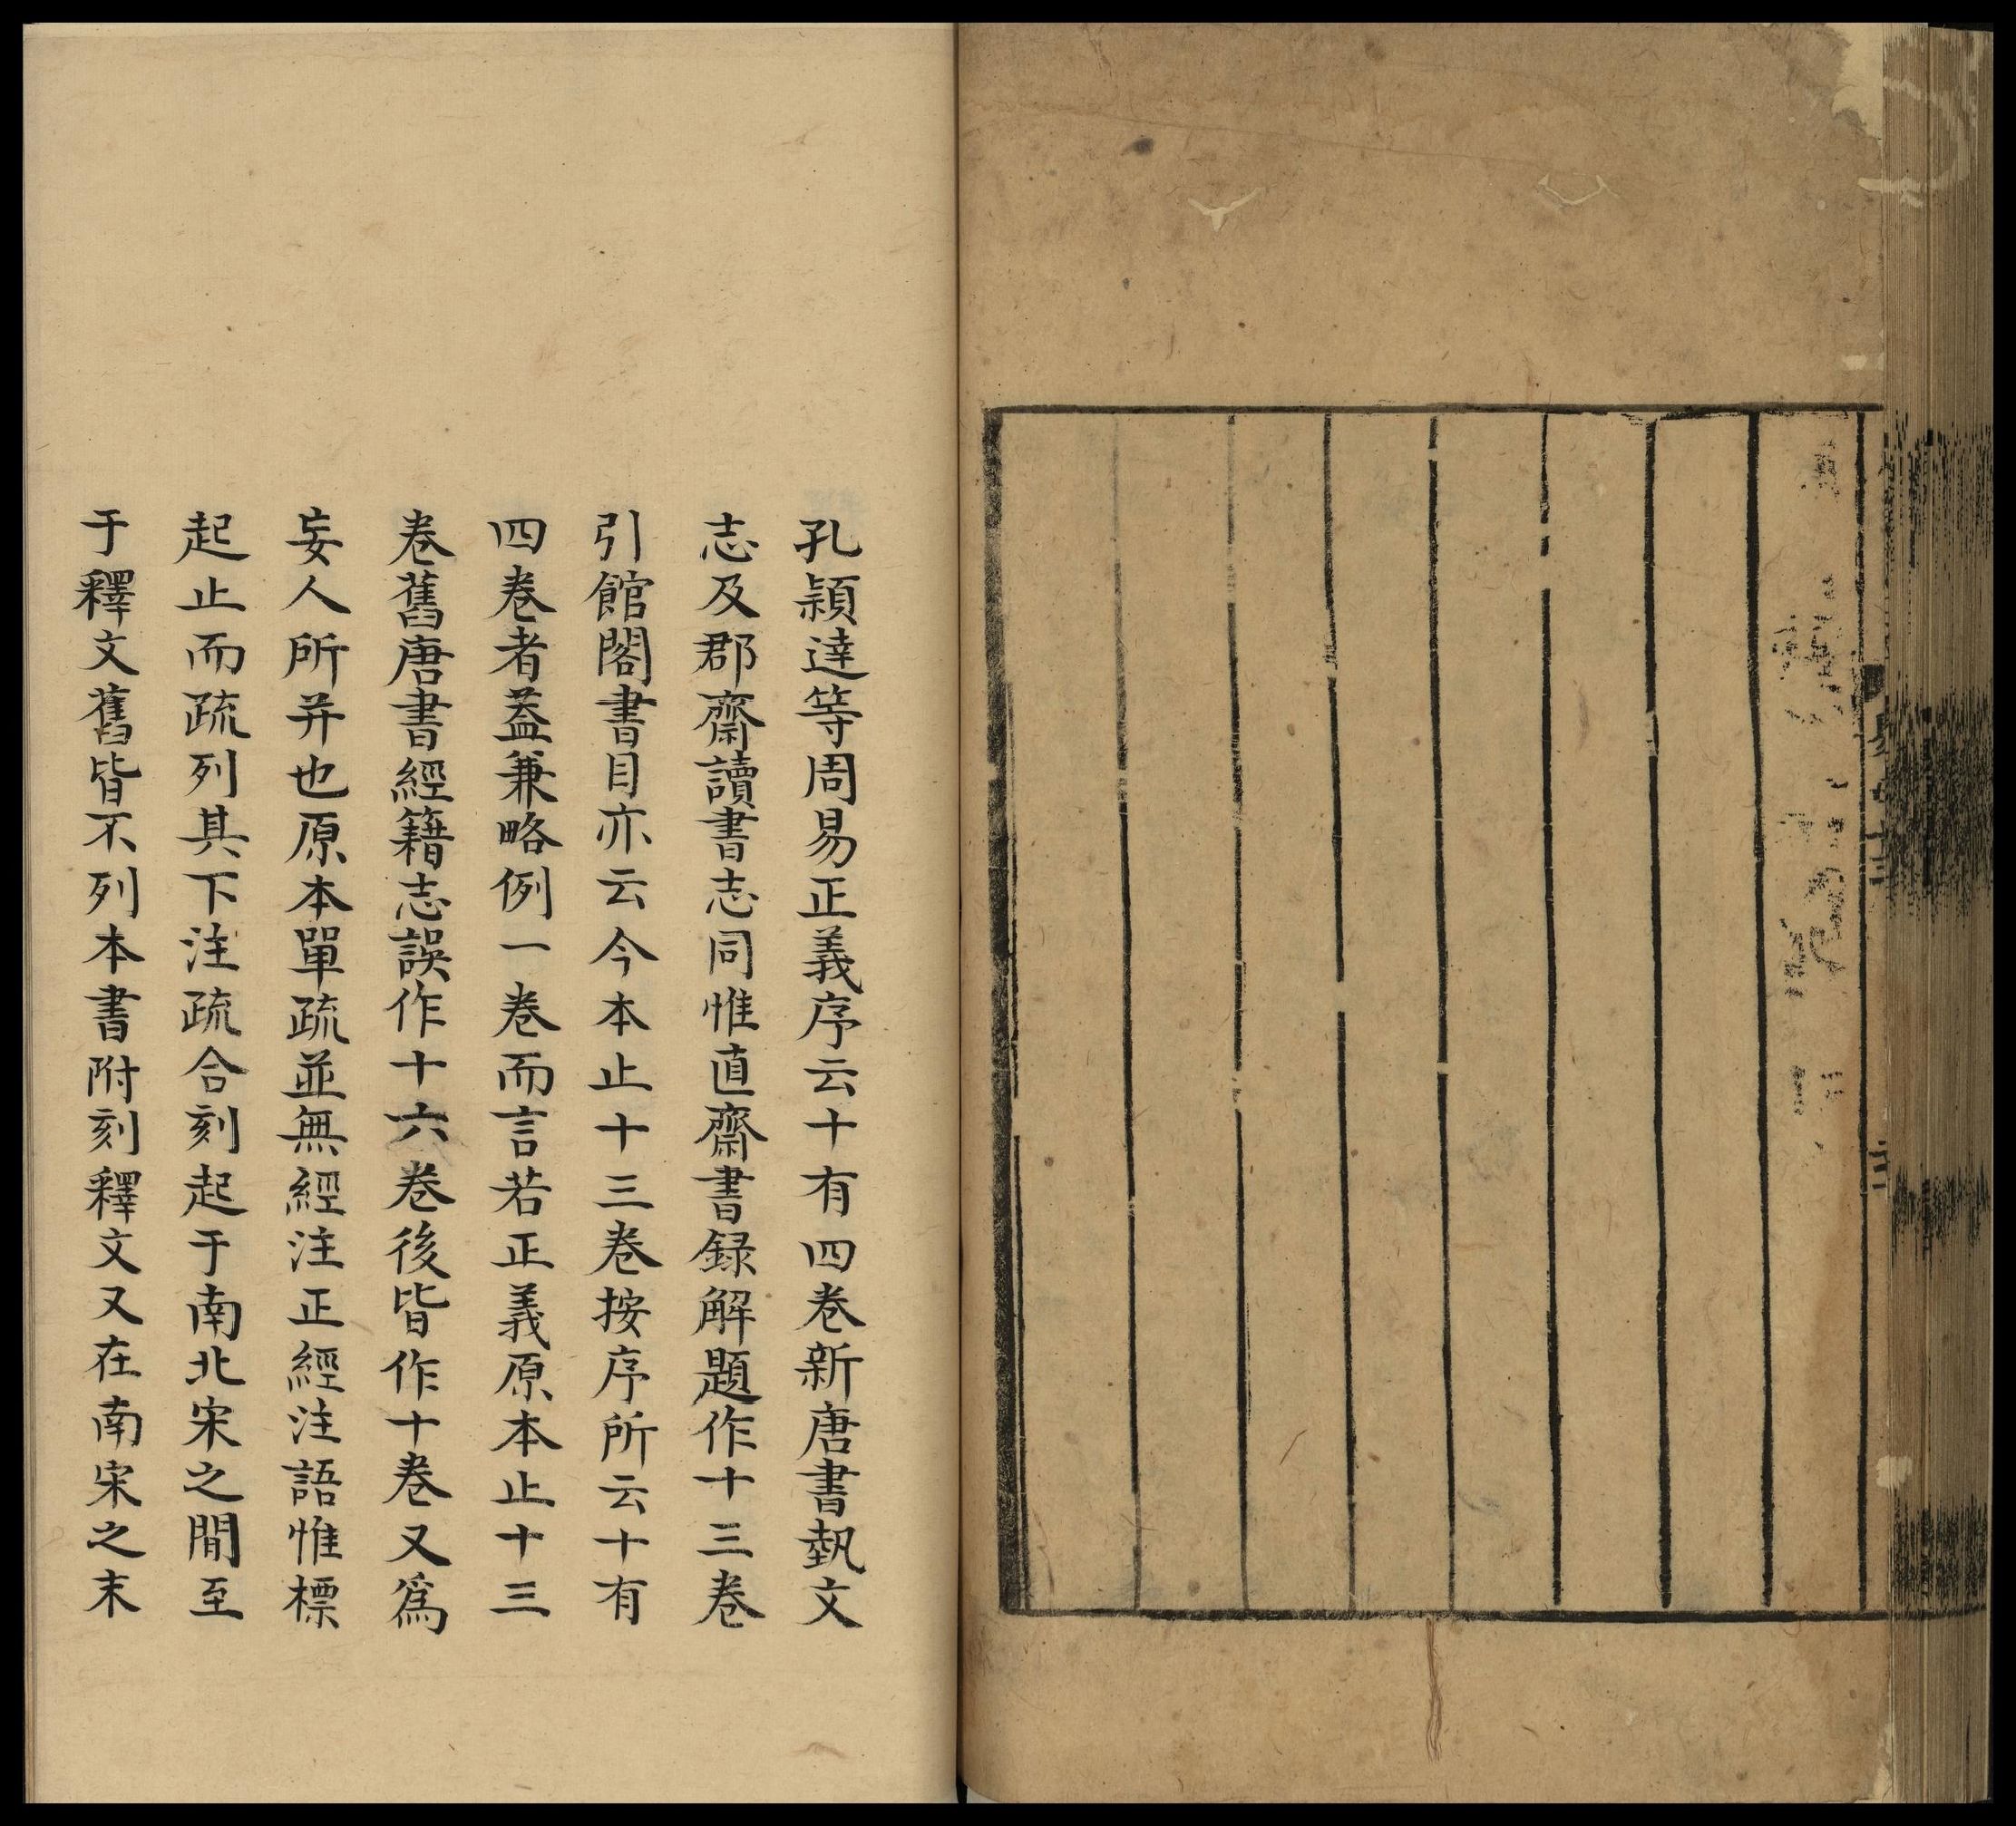 孔頴逹等周易正義序云十有四卷新唐書埶文
志及郡齋讀書志同惟直齋書録解題作十三卷
引館閣書目亦云今本止十三卷按序所云十有
四卷者葢兼略例一卷而言若正義原本止十三
卷舊唐書經籍志誤作十六卷後皆作十卷又爲
妄人所并也原本單疏並無經注正經注語惟標
起止而疏列其下注疏合刻起于南北宋之間至
于釋文舊皆不列本書附刻釋文又在南宋之末